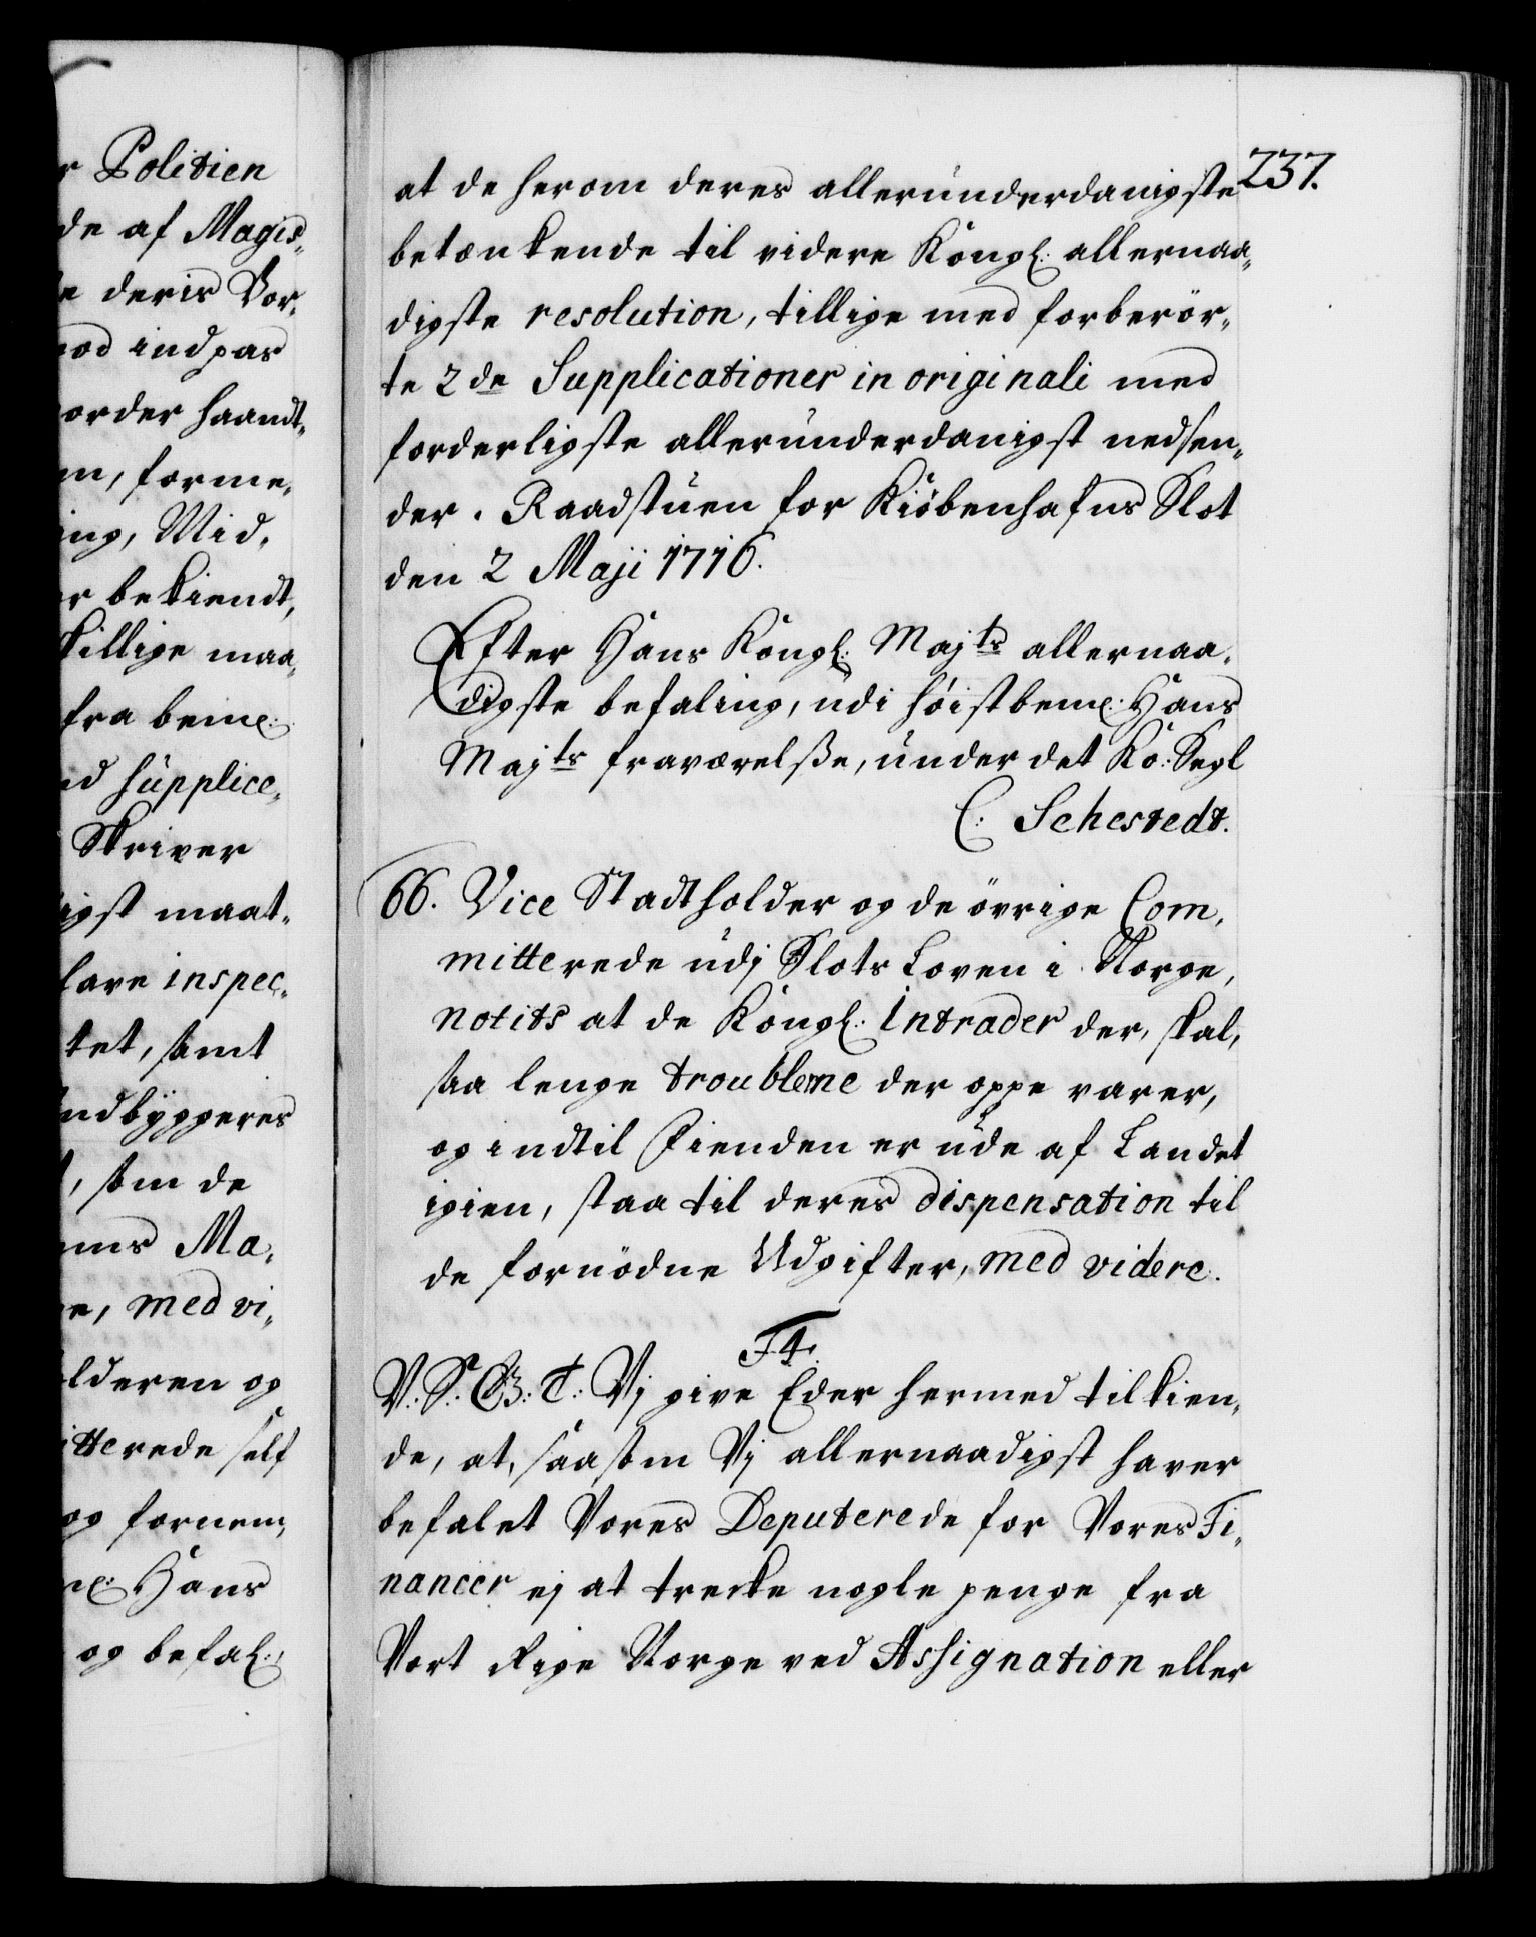 r Politien
de af Magis„
e deris Vor„
od indpas
order haandt„
n, forme„
ing, Mid„
r bekiendt,
killige maa„
fra bem:
d supplice„
Skriver
igst maat„
lare inspec„
tet, samt
ndbyggeres
, som de
ms Ma„
e, med vi„
lderen og
itterede self
og fornem„
Hans
og befal:
237.
at de herom deres allerunderdanigste
betænkende til videre Kongl: allernaa„
digste resolution, tillige med forberör„
te 2de Supplicationer in originali med
forderligste allerunderdanigst nedsen„
der. Raadstuen for Kiöbenhafns Slot
den 2 Maji 1716.
Efter Hans Kongl: Majts allernaa„
digste befaling, udi höistbem: Hans
Majts fraværelsse, under det Ko: Segl
C: Sehestedt.
66. Vice Stadtholder og de övrige Com„
mitterede udj Slots Loven i Norge,
notits at de Kongl: Intrader der, skal,
saa lenge troublerne der oppe varer,
og indtil Fienden er ude af Landet
igien, staa til deres dispensation til
de fornödne Udgifter, med videre.
F4.
V: S: G: T: Vj give Eder hermed tilkien„
de, at, saasom Vj allernaadigst haver
befalet Vores Deputerede for Vores Fi„
nancer ej at trecke nogle penge fra
Vort Rige Norge ved Assignation eller